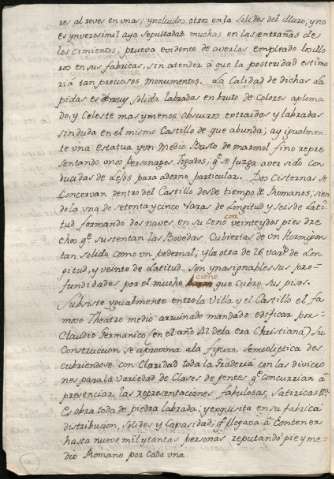 res al reves en una; yncluidos otros en la solides del Muro, y no
es ynverosimil aya sepultadas muchas en las entrañas de
los cimientos; prueva evidente de averlas empleado los Mo
ros en sus fabricas, sin atender á que la posteridad estima
ria tan preciosos monumentos. La calidad de dichas la
pidas es solida, labradas en bruto de Colores aploma
do, y Celeste mas y menos obscuro extraidos y labradas
sin duda en el mismo Castillo de que abunda; ay igualmen
te una estatua y un Medio Basto de marmol fino repre
sentando unos Personages Togados, qe se juzga aver sido con
ducidas de lejos para adorno particular. Dos Cisternas se
Concervan dentro del Castillo desde tiempo de Romanos, sien
do la una de setenta y cinco Varas de Longitud y Seis de lati
tud formando dos naves, en su ceno veinte y dos pies dre
con
cho qe sustentan las Bovedas Cubiertas de un Hormigon
tan solido como un pedernal; y la otra de 26 varas de Lon
gitud, y veinte de Latitud. Son ynasignables sus pro
fundidades por el mucho que cubre sus pies.
cieno
Subsiste ygualmente entre la Villa y el Castillo el fa
moso Theatro medio arruinado mandado edificar por
Claudio Germanico en el año de la era Christiana. Su
Construccion se aproxima a la figura Semieliptica des
cubriendose con claridad toda la Graderia con las divicio
nes para la variedad de Clases de gentes qe concurrian á
presenciar las representaciones fabulosas, Satricas
Es obra toda de piedra labrada, y exquisita en su fabrica
distribucion, solides y Capasidad qe llegava á Contener
hasta nueve mil y tantas personas reputando pie y me
dio Romano por cada una